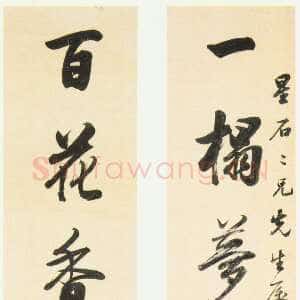 星石二兄先生
一榻夢
百花香
Shufawang.CN